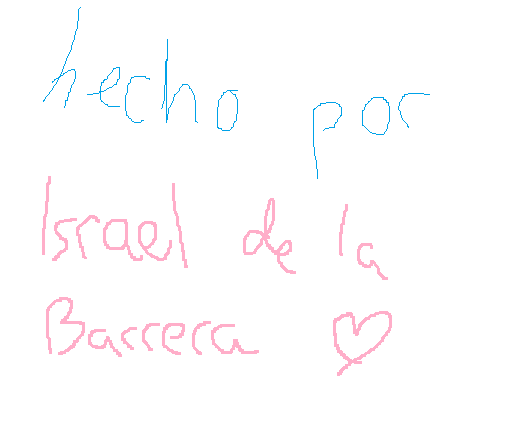 hecho por
Israel de la
Barrera ♡